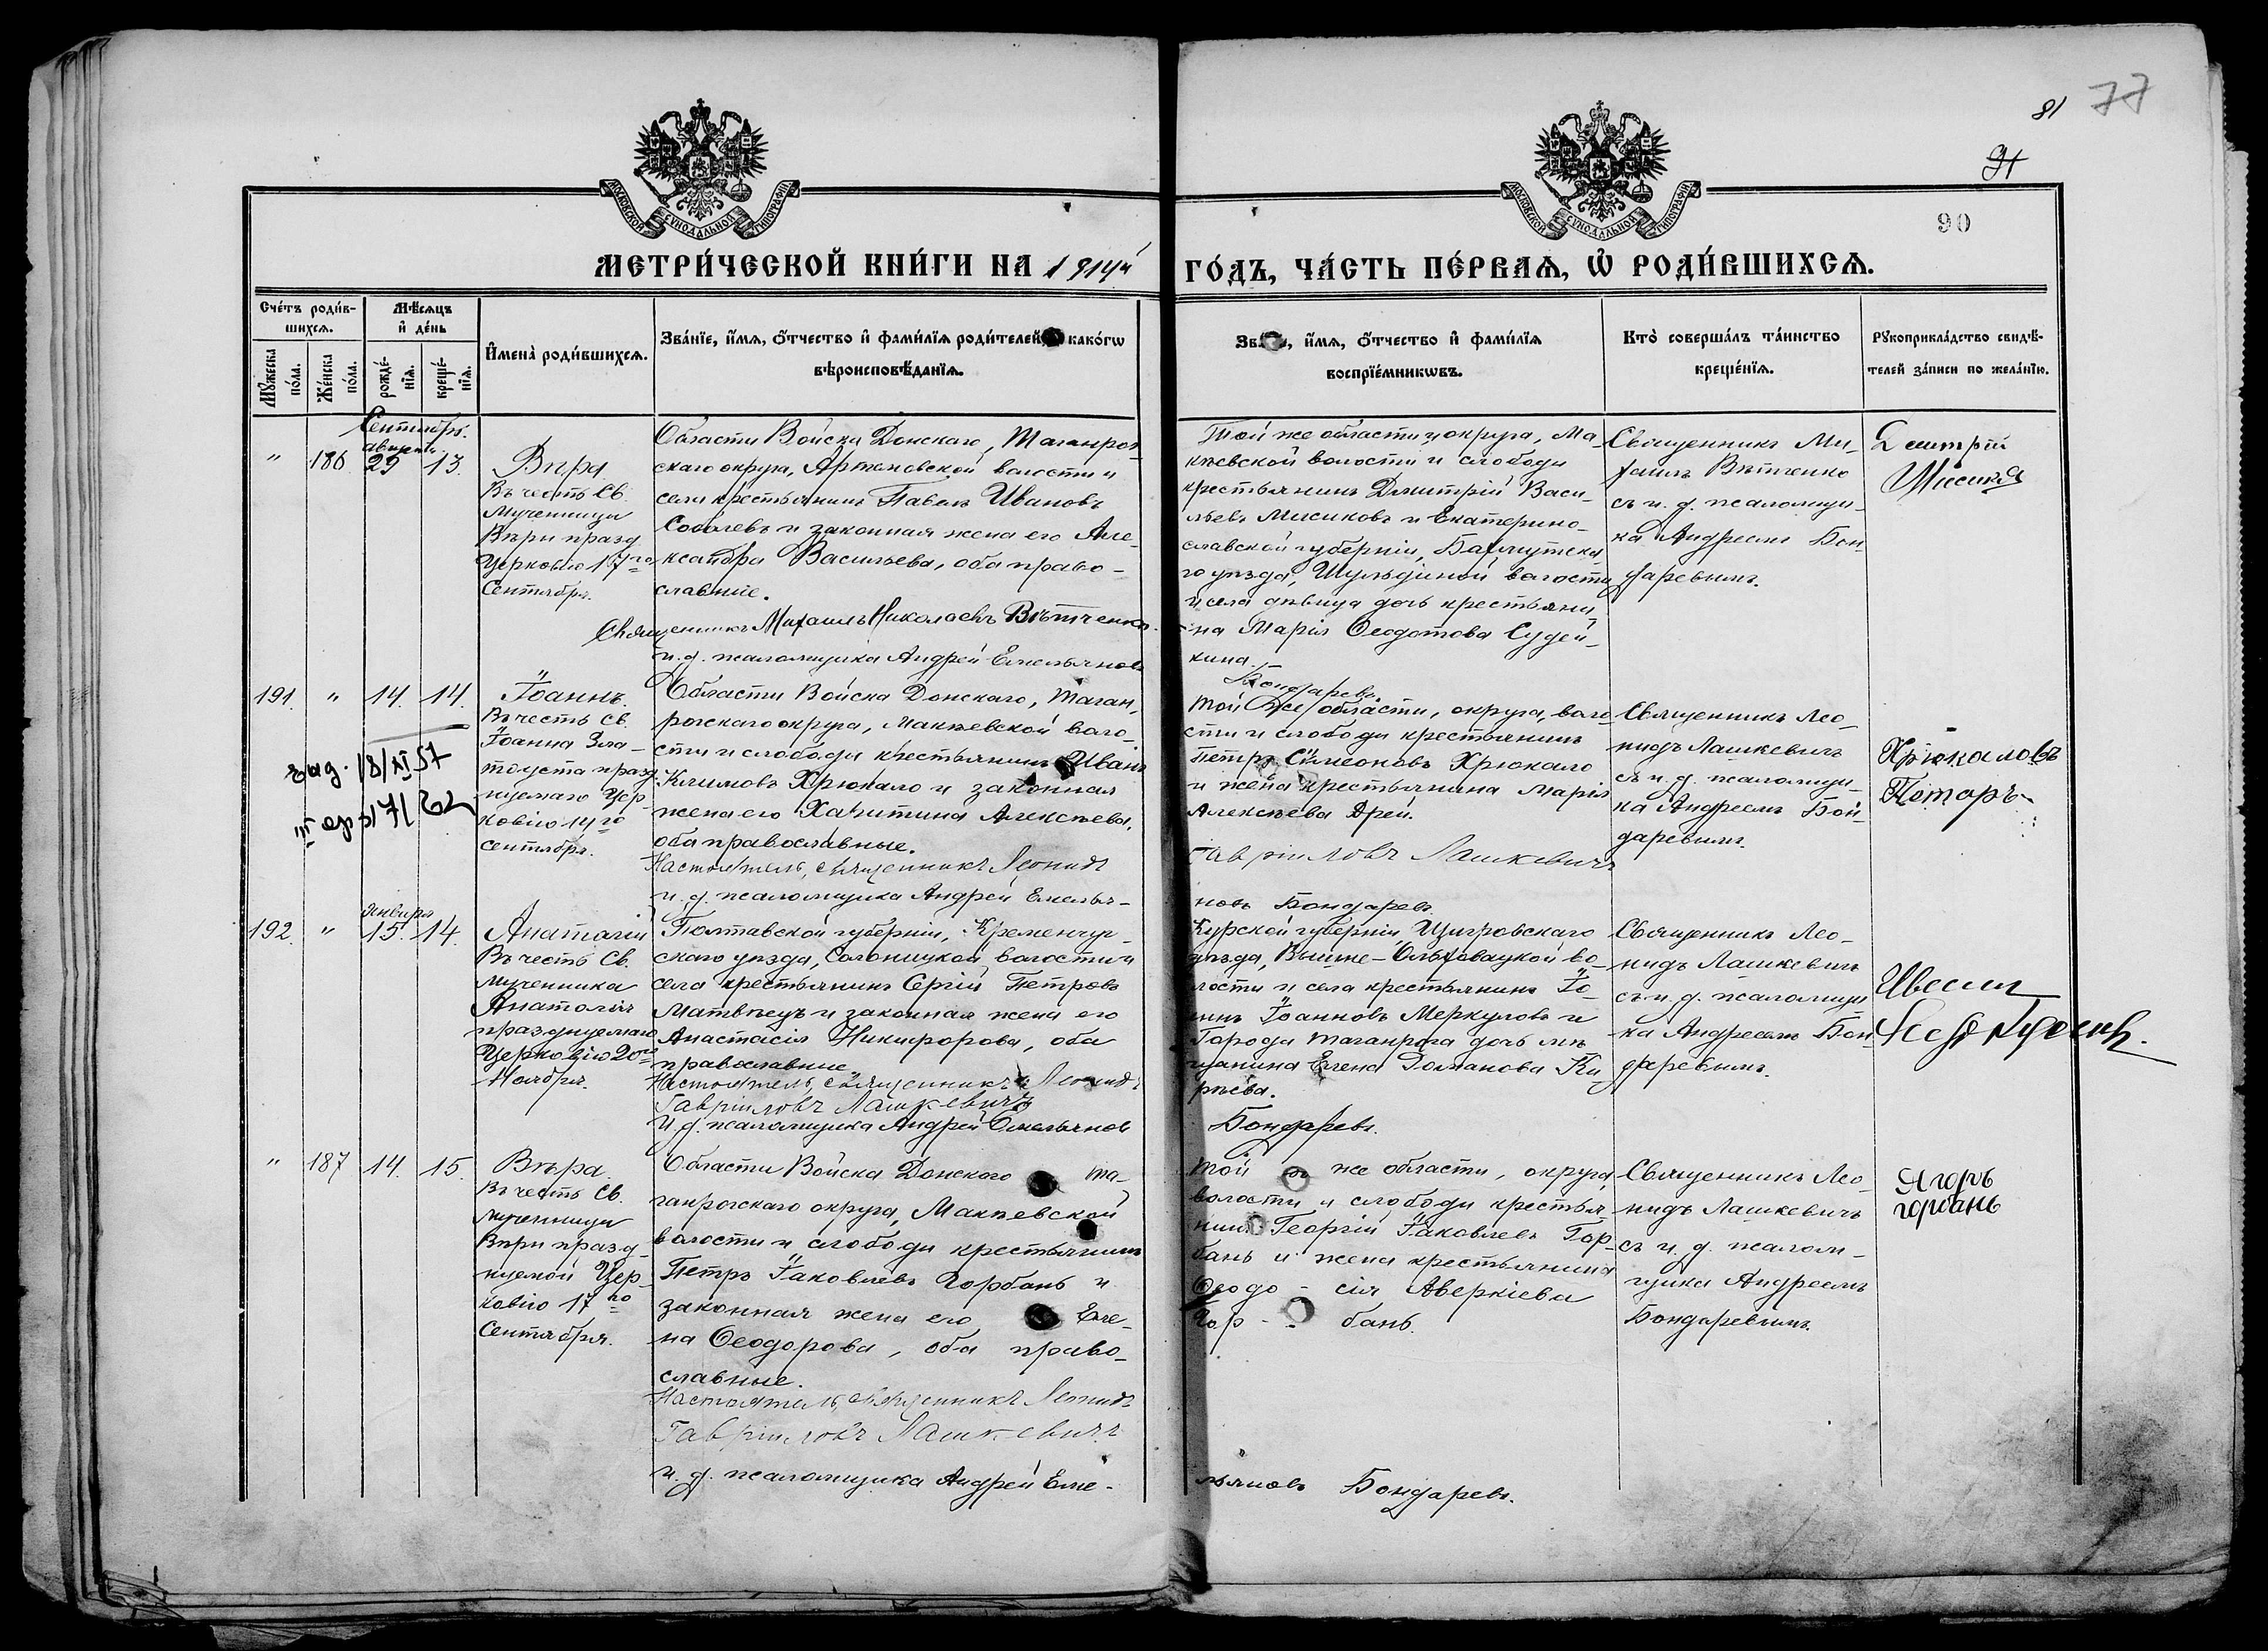 81 77
91
90
МОСКОВСКОЙ СУНОДАЛЬНОЙ ТИПОГРАФІИ
МОСКОВСКОЙ СУНОДАЛЬНОЙ ТИПОГРАФІИ
МЕТРИ́ЧЕСКОЙ КНИ́ГИ НА 1914й
ГО́ДЪ, ЧА́СТЬ ПЕ́РВАѦ, Ѽ РОДИ́ВШИХСѦ.
Сче́тъ роди́в-
шихсѧ.
Мꙋ́жеска по́ла.
Же́нска по́ла.
Мѣ́сѧцъ
и҆ де́нь
рожде́-
нїѧ.
креще́-
нїѧ.
И҆мена̀ роди́вшихсѧ.
Зва́нїе, и҆́мѧ, ѻ҆́тчество и҆ фами́лїѧ роди́телей, како́гѡ
вѣроисповѣ́данїѧ.
и҆́мѧ, ѻ҆́тчество и҆ фами́лїѧ
воспрїе́мникѡвъ.
Кто̀ соверша́лъ та́инство
креще́нїѧ.
Рꙋкоприкла́дство свидѣ́-
телей за́писи по жела́нїю.
Сентябрь.
" 186 августа 29 13.
Вѣра
Въ честь Св.
Мученицы
Вѣры празд.
Церковію 17го
Сентября.
Области Войска Донскаго, Таганрог-
скаго округа, Артемовской волости и
села крестьянинъ Павелъ Ивановъ
Соболевъ и законная жена его Але-
ксандра Васильева, оба право-
славные.
Священникъ Михаилъ Николаевъ Вѣтченко.
и. д. псаломщика Андрей Емельяновъ
Той же области и округа, Ма-
кѣевской волости и слободы
крестьянинъ Дмитрій Васи-
льевъ Мисиковъ и Екатерино-
славской губерніи, Бахмутска-
го уѣзда, волости
и села дѣвица дочь крестьяни-
на Марія Ѳеодотова Судей-
кина.
Бондаревъ.
Священникъ Ми-
хаилъ Вѣтченко
съ и. д. псаломщи-
ка Андреемъ Бон-
даревымъ.
Дмитрій
191. " 14. 14.
Іоаннъ.
Въ честь св.
Іоанна Зла-
тоуста празд-
нуемаго Цер-
ковію 14го
сентября.
Области Войска Донскаго, Таган-
рогскаго округа, Макѣевской воло-
сти и слободы крестьянинъ Иванъ
Климовъ Хрюкало и законная
жена его Харитина Алексѣева,
оба православные.
Настоятель, священникъ Леонидъ
и. д. псаломщика Андрей Емелья-
Той же области, округа, воло-
сти и слободы крестьянинъ
Петръ Сѵмеоновъ Хрюкало
и жена крестьянина Марія
Алексѣева Дрей.
Гавріиловъ Лашкевичъ
новъ Бондаревъ.
Священникъ Лео-
нидъ Лашкевичъ
съ и. д. псаломщи-
ка Андреемъ Бон-
даревымъ.
Хрюкаловъ
Петоръ
192. " января 15. 14.
Анатолій
Въ честь Св.
мученика
Анатолія
празднуемаго
Церковію 20го
Ноября.
Полтавской губерніи, Кременчуг-
скаго уѣзда, Солоницкой волости и
села крестьянинъ Сергій Петровъ
Матвѣецъ и законная жена его
Анастасія Никифорова, оба
православные.
Настоятель, священникъ Леонидъ
Гавріиловъ Лашкевичъ
И. д. псаломщика Андрей Емельяновъ
Курской губерніи, Щигровскаго
уѣзда, Выше-Ольховацкой во-
лости и села крестьянинъ Іо-
аннъ Іоанновъ Меркуловъ и
Города Таганрога дочь мѣ-
щанина Елена Ки-
рѣева.
Бондаревъ.
Священникъ Лео-
нидъ Лашкевичъ
съ и. д. псаломщи-
ка Андреемъ Бон-
даревымъ.
" 187 14. 15.
Вѣра
Въ честь Св.
мученицы
Вѣры празд-
нуемой Цер-
ковію 17го
Сентября.
Области Войска Донского Та-
ганрогскаго округа, Макѣевской
волости и слободы крестьянинъ
Петръ Іаковлевъ Горбань и
законная жена его Еле-
на Ѳеодорова, оба право-
славные.
Настоятель, священникъ Леонидъ
Гавріиловъ Лашкевичъ
и. д. псаломщика Андрей Еме-
Той же области, округа,
волости и слободы крестья-
нинъ Георгій Іаковлевъ Гор-
бань и жена крестьянина
Ѳеодо - сія Аверкіева
Гор - бань.
льяновъ Бондаревъ.
Священникъ Лео-
нидъ Лашкевичъ
съ и. д. псалом-
щика Андреемъ
Бондаревымъ.
Ягоръ
горбань